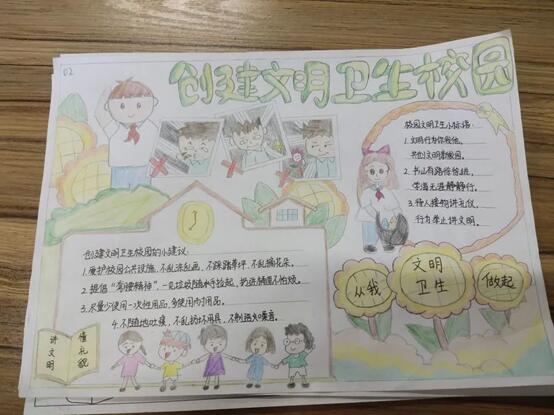 02
创建文明卫生校园
校园文明卫生小标语:
1.文明行为你我他,
共创文明新校园。
2.书山有路傍书班,
学海无涯静静行。
3.待人接物讲礼仪,
行为举止讲文明。
创建文明卫生校园的小建议:
1.爱护校园公共设施,不乱涂乱画,不踩踏草坪,不乱摘花朵。
2.提倡“弯腰精神”,一见垃圾随时捡起,扔进桶里不怕烦。
3.尽量少使用一次性用品,多使用耐用品。
4.不随地吐痰,不乱扔坏用具,不制造大噪音。
讲文明
懂礼貌
从我
文明
卫生
做起